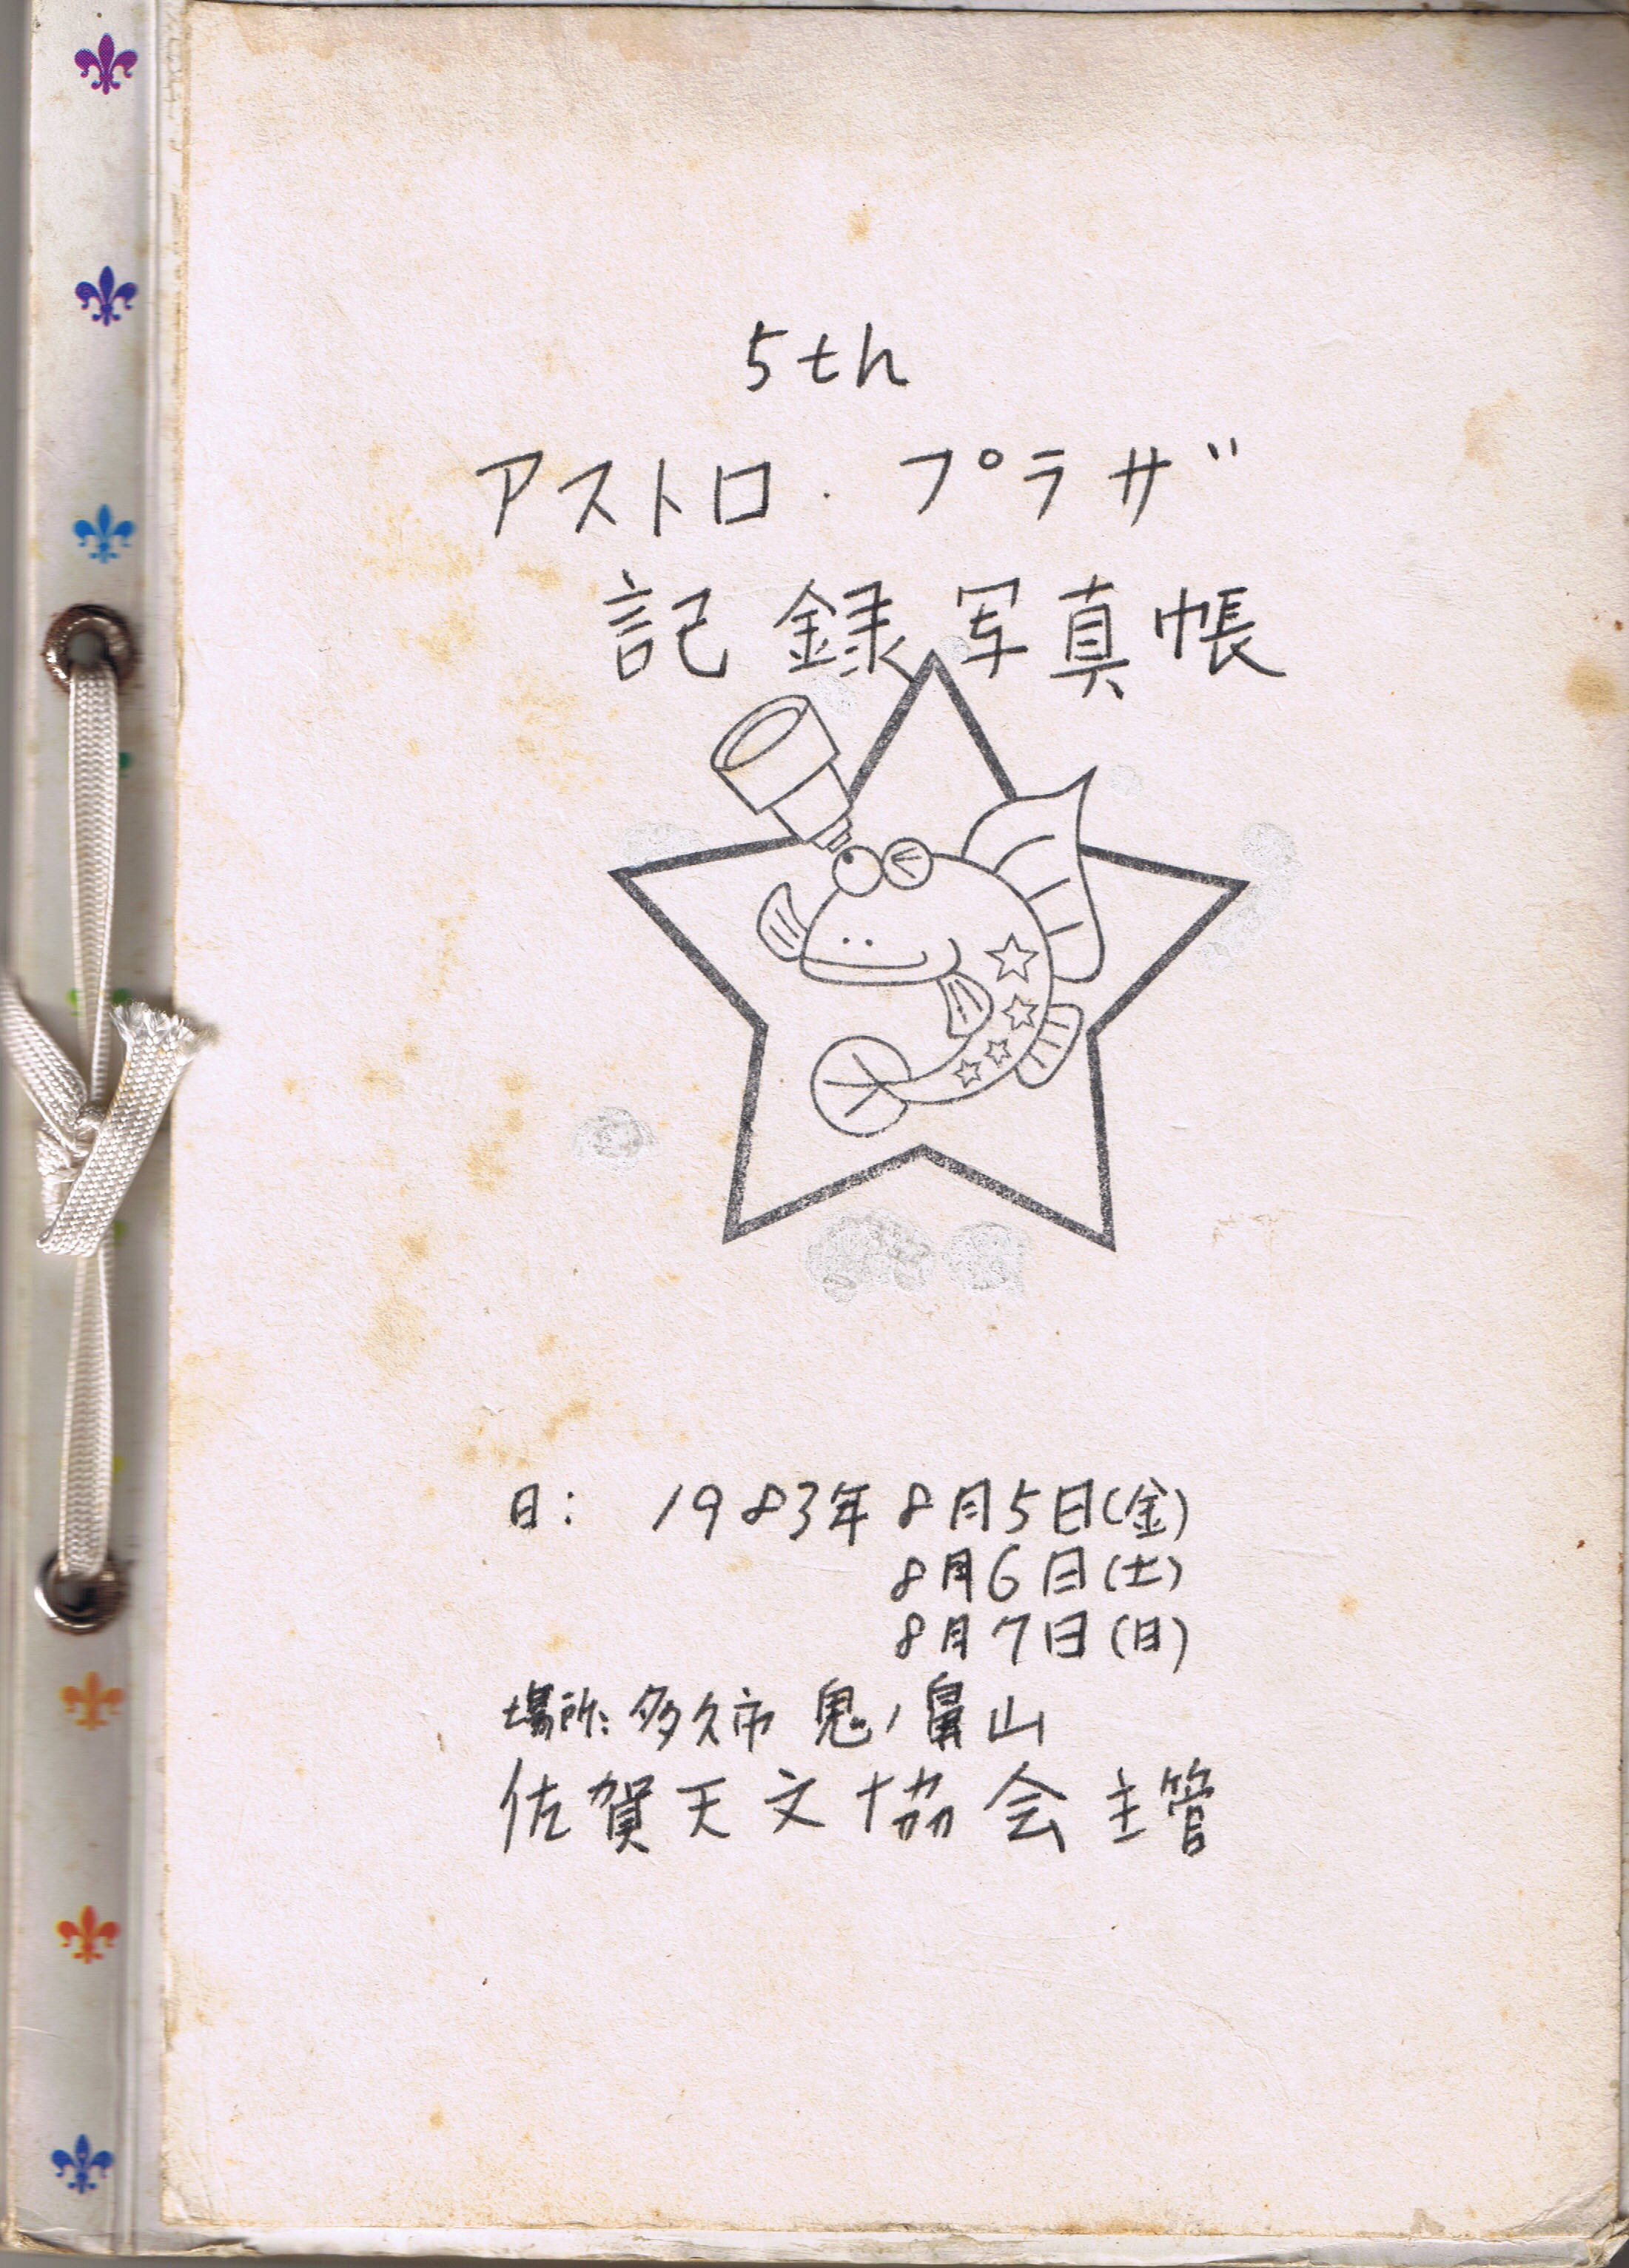 5th
アストロ・プラザ
記録写真帳
日: 1983年8月5日(金)
8月6日(土)
8月7日(日)
場所: 多久市 鬼ノ鼻山
佐賀天文協会主管